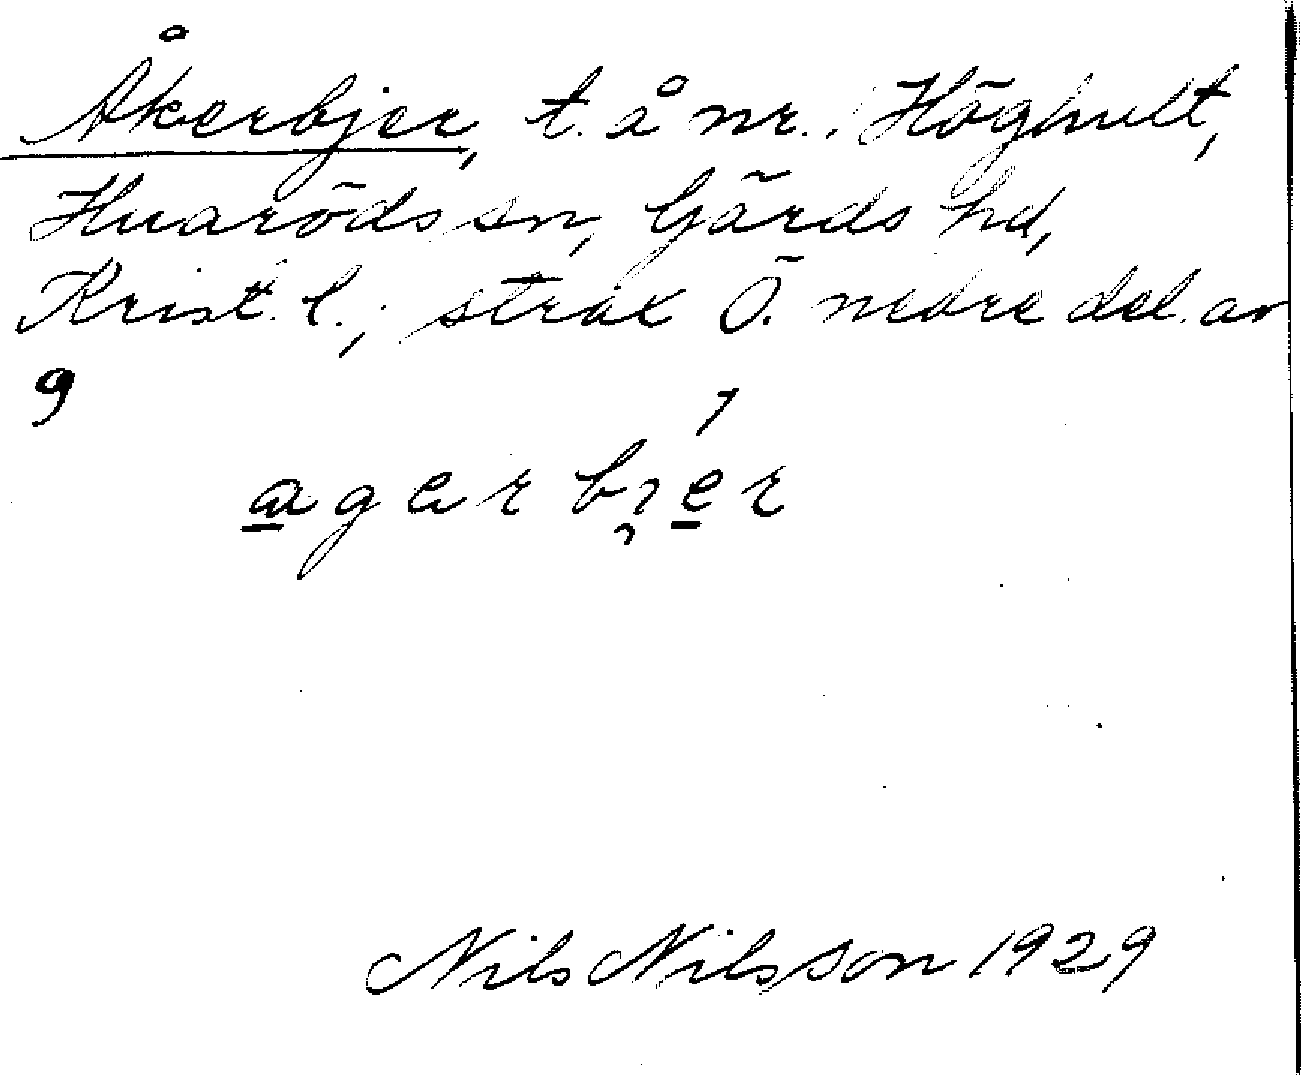 Åkerbjer, t. å nr. Höghult,
Huaröds sn, Gärds hd,
Krist. l.; strax Ö. nedre del. av
9
agerbier
Nils Nilsson 1929